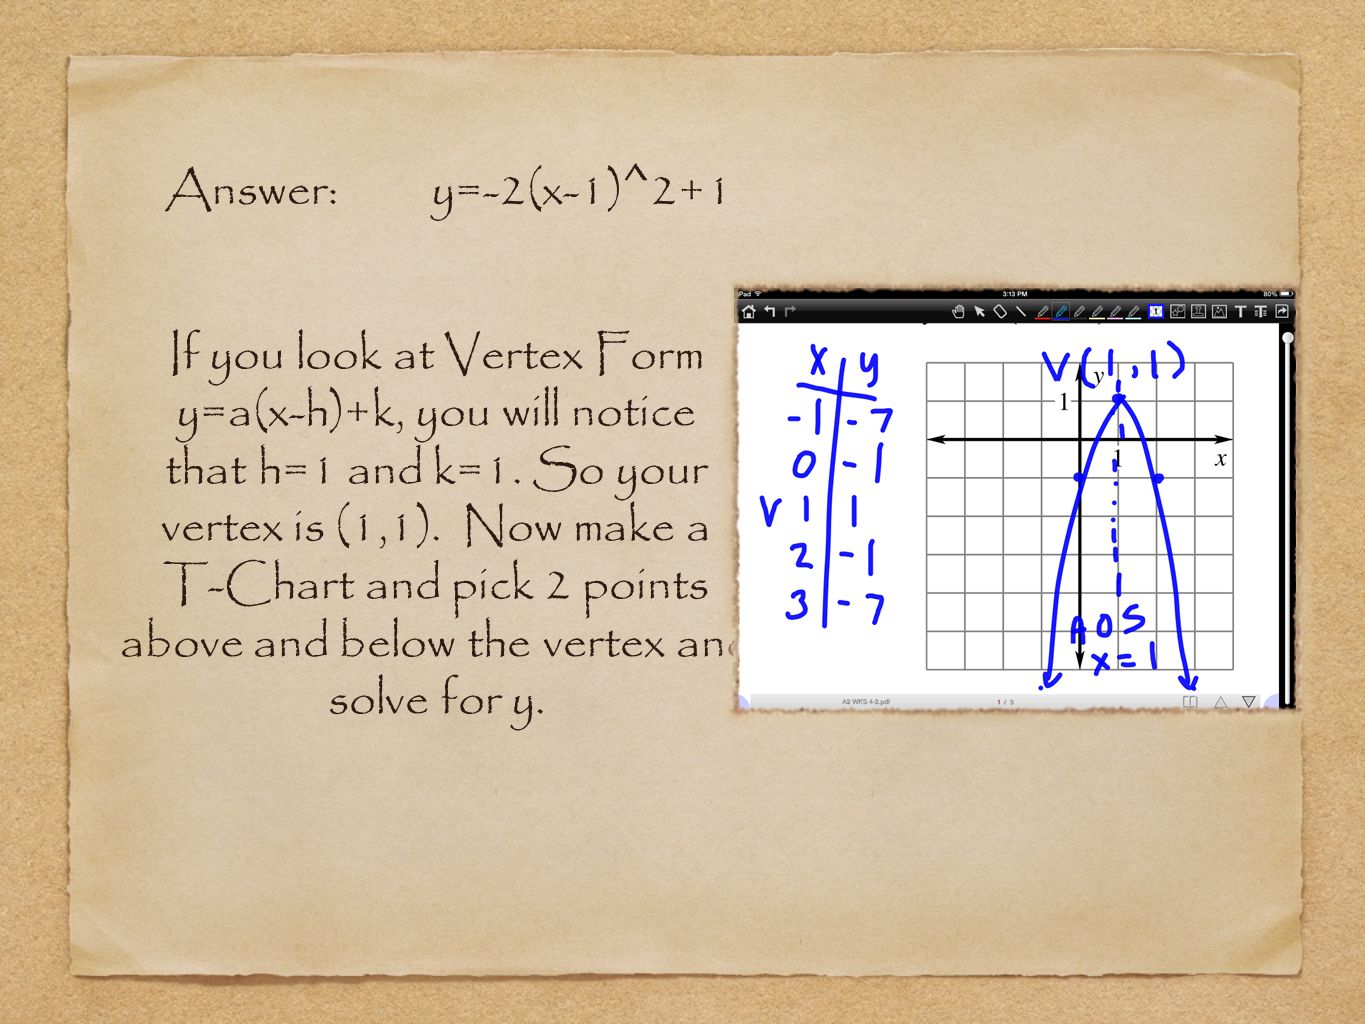 Answer: y=-2(x-1)^2+1
If you look at Vertex Form
y=a(x-h)+k, you will notice
that h=1 and k=1. So your
vertex is (1,1). Now make a
T-Chart and pick 2 points
above and below the vertex an
solve for y.
iPad 3:13 PM 80%
x y
-1 -7
0 -1
V 1 1
2 -1
3 -7
V(1,1)
y
1
1
x
AOS
x=1
A2 WKS 4-2.pdf 1 / 3